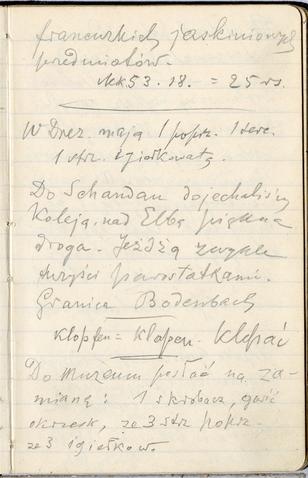 francuskich jaskiniowych
przedmiotów.
Mk 53. 18. = 25 rs.
W Drez. mają 1 poprz. 1 serc.
1 strz. igiełkowatą.
Do Schandau dojechaliśmy
Koleją, nad Elbą piękna
droga. Jeżdżą zwykle
wszyści parostatkami.
Granica Bodenbach
Klopfen = Klopen - Klepać
Do Muzeum posłać na za-
mianę: 1 skrobacz, garść
okrzesk, ze 3 strz poprz.
ze 3 igiełkow.